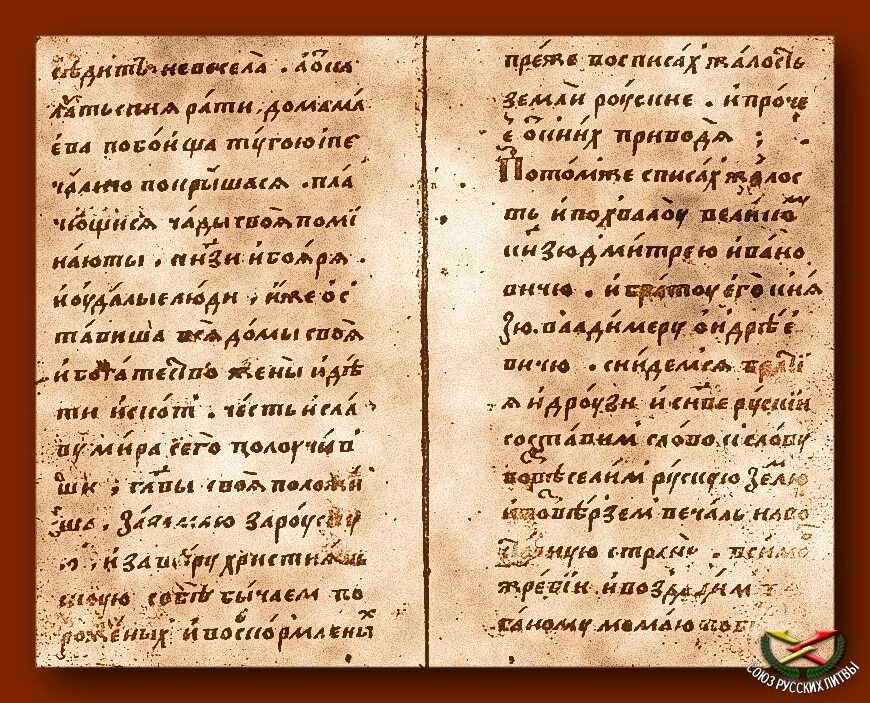 сѣдитъ невесела . а ѿ ка
латьския рати . до мама
ева побоища тугою и пе
чалию покрышася . пла
чющися чады своя помі
нають . кнѧзи и бояря .
и оудалые люди , иже ос
тавиша вся домы своя
и богатество жены и дѣ
ти и скот . честь и сла
ву мира сего полоучив
ши ; главы своя положи
ша . за землю за роускую
и за вѣру христиань
скую собѣ бычаем по
роженых и воскормленых
преже восписах жалость
земли роуские . и проче
е ѿ кних приводя ;
Потом же списах жалос
ть и похвалоу великому
кнзю дмитрею ивано
вичю . и братоу его кня
зю . владимеру ондрѣе
вичю . снидемся братиі
я и друзи и снве рускии
составим слово к слову
возвѣселим рускую землю
и возвѣрзем печаль на во
сточную страну . в симо
жребіи и воздадим
ганому момаю побе
СОЮЗ РУССКИХ ЛИТВЫ